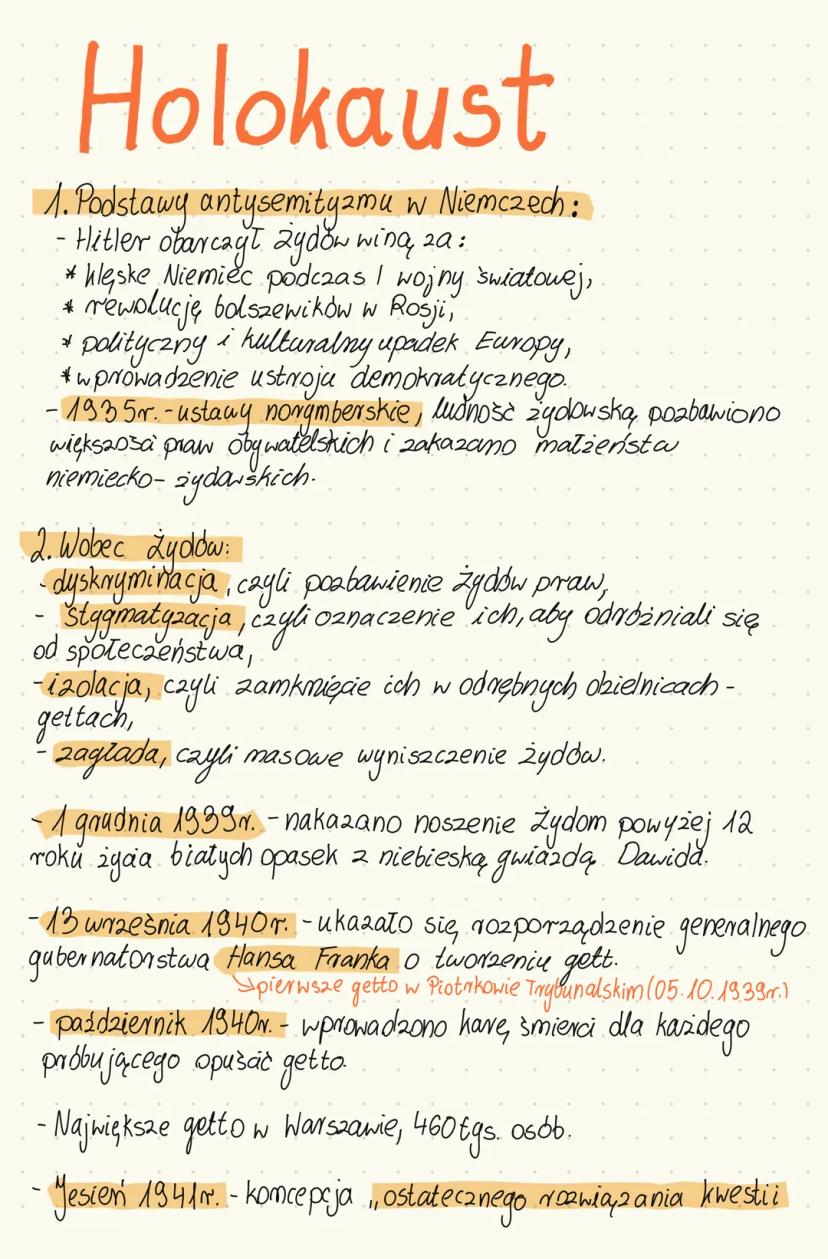 Holokaust
1. Podstawy antysemityzmu w Niemczech:
- Hitler obarczył żydów winą za:
* klęske Niemiec podczas I wojny światowej,
* rewolucję bolszewików w Rosji,
* polityczny i kulturalny upadek Europy,
* wprowadzenie ustroju demokratycznego.
- 1935r. - ustawy norymberskie, ludność żydowską pozbawiono
większości praw obywatelskich i zakazano małżeństw
niemiecko- żydowskich.
2. Wobec Żydów:
- dyskryminacja, czyli pozbawienie żydów praw,
- stygmatyzacja, czyli oznaczenie ich, aby odróżniali się
od społeczeństwa,
- izolacja, czyli zamknięcie ich w odrębnych dzielnicach -
gettach,
- zagłada, czyli masowe wyniszczenie żydów.
- 1 grudnia 1939r. - nakazano noszenie Żydom powyżej 12
roku życia białych opasek z niebieską gwiazdą Dawida.
- 13 września 1940r. - ukazało się rozporządzenie generalnego
gubernatorstwa Hansa Franka o tworzeniu gett.
↳ pierwsze getto w Piotrkowie Trybunalskim (05.10.1939r.)
- październik 1940r. - wprowadzono karę śmierci dla każdego
próbującego opuścić getto.
- Największe getto w Warszawie, 460tys. osób.
- Jesień 1941r. - koncepcja „ostatecznego rozwiązania kwestii